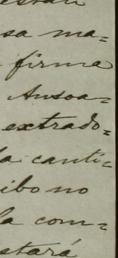 sa ma=
firma
Ansoa=
extrado=
la canti=
ibo no
la com=
stará